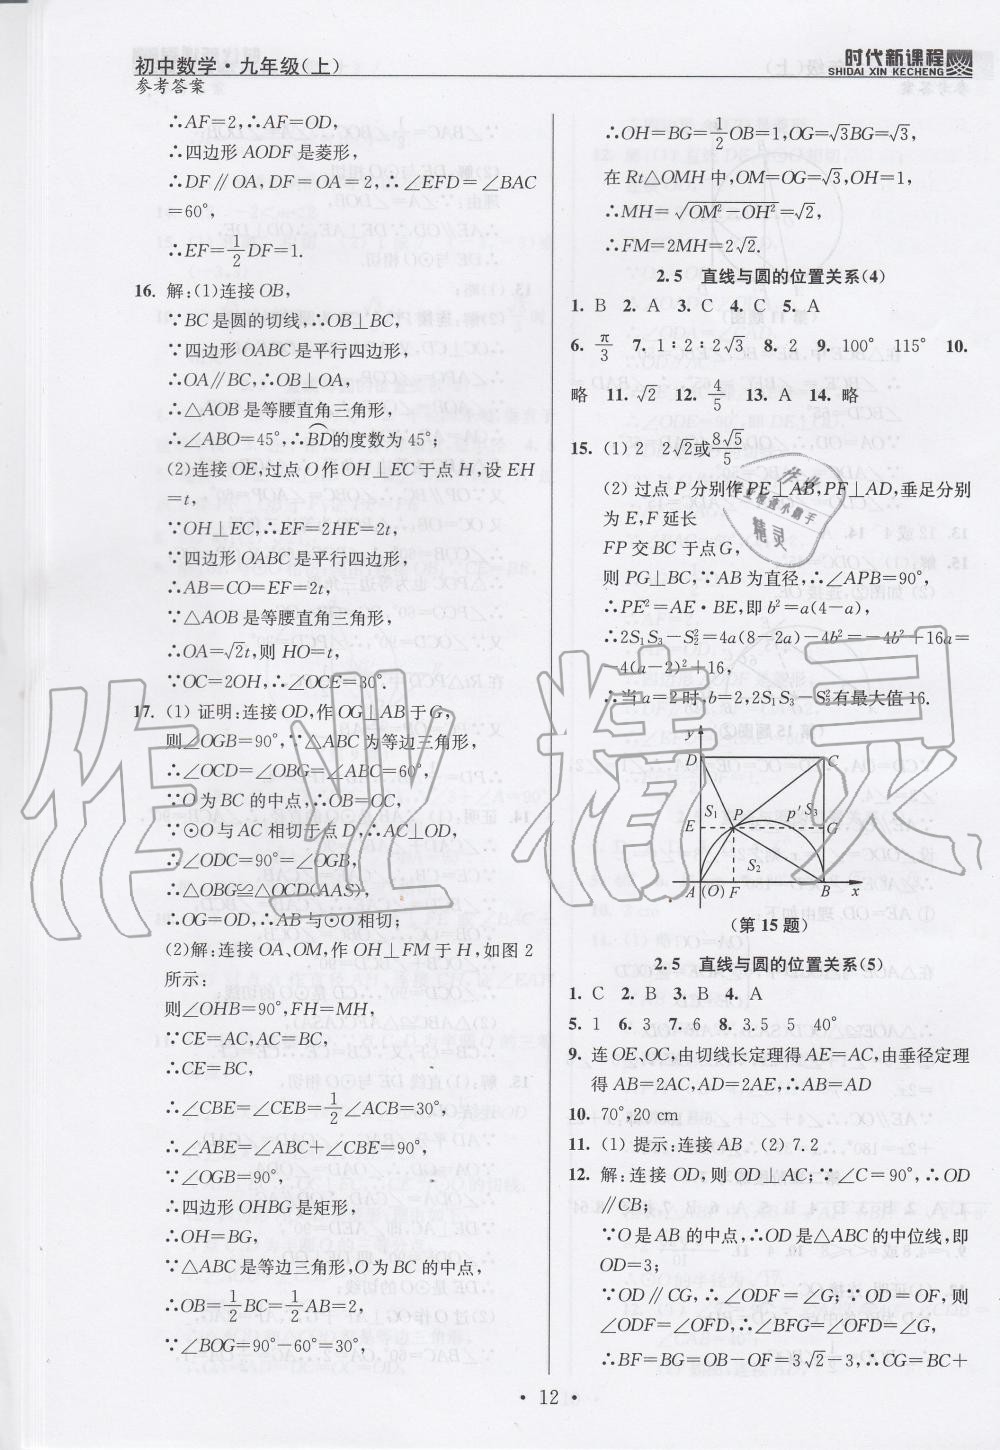 初中数学·九年级(上)
参考答案
时代新课程
SHIDAI XIN KECHENG
∴AF=2,∴AF=OD,
∴四边形 AODF 是菱形,
∴DF∥OA,DF=OA=2,∴∠EFD=∠BAC
=60°,
∴EF=1/2 DF=1.
16. 解:(1)连接 OB,
∵BC 是圆的切线,∴OB⊥BC,
∵四边形 OABC 是平行四边形,
∴OA∥BC,∴OB⊥OA,
∴△AOB 是等腰直角三角形,
∴∠ABO=45°,∴BD⌒的度数为 45°;
(2)连接 OE,过点 O 作 OH⊥EC 于点 H,设 EH
=t,
∵OH⊥EC,∴EF=2HE=2t,
∵四边形 OABC 是平行四边形,
∴AB=CO=EF=2t,
∵△AOB 是等腰直角三角形,
∴OA=√2t,则 HO=t,
∵OC=2OH,∴∠OCE=30°.
17. (1) 证明:连接 OD,作 OG⊥AB 于 G,
则∠OGB=90°,∵△ABC 为等边三角形,
∴∠OCD=∠OBG=∠ABC=60°,
∵O 为 BC 的中点,∴OB=OC,
∵⊙O 与 AC 相切于点 D,∴AC⊥OD,
∴∠ODC=90°=∠OGB,
∴△OBG≌△OCD(AAS),
∴OG=OD,∴AB 与⊙O 相切;
(2)解:连接 OA、OM,作 OH⊥FM 于 H,如图 2
所示:
则∠OHB=90°,FH=MH,
∵CE=AC,AC=BC,
∴CE=BC,
∴∠CBE=∠CEB=1/2∠ACB=30°,
∴∠ABE=∠ABC+∠CBE=90°,
∵∠OGB=90°,
∴四边形 OHBG 是矩形,
∴OH=BG,
∵△ABC 是等边三角形,O 为 BC 的中点,
∴OB=1/2BC=1/2AB=2,
∵∠BOG=90°-60°=30°,
∴OH=BG=1/2OB=1,OG=√3BG=√3,
在 Rt△OMH 中,OM=OG=√3,OH=1,
∴MH=√(OM²-OH²)=√2,
∴FM=2MH=2√2.
2.5 直线与圆的位置关系(4)
1. B 2. A 3. C 4. C 5. A
6. π/3 7. 1∶2∶2√3 8. 2 9. 100° 115° 10.
略 11. √2 12. 4/5 13. A 14. 略
15. (1) 2 2√2或8√5/5
(2) 过点 P 分别作 PE⊥AB,PF⊥AD,垂足分别
为 E,F 延长
FP 交 BC 于点 G,
则 PG⊥BC,∵AB 为直径,∴∠APB=90°,
∴PE²=AE·BE,即 b²=a(4-a),
∴2S₁S₃-S₂²=4a(8-2a)-4b²=-4b²+16a=
-4(a-2)²+16,
∴当 a=2 时,b=2,2S₁S₃-S₂²有最大值 16.
y
D C
S₁ P p′ S₃
E G
S₂
A (O) F B x
(第 15 题)
2.5 直线与圆的位置关系(5)
1. C 2. B 3. B 4. A
5. 1 6. 3 7. 6 8. 3.5 5 40°
9. 连 OE、OC,由切线长定理得 AE=AC,由垂径定理
得 AB=2AC,AD=2AE,∴AB=AD
10. 70°,20 cm
11. (1) 提示:连接 AB (2) 7.2
12. 解:连接 OD,则 OD⊥AC;∵∠C=90°,∴OD
∥CB;
∵O 是 AB 的中点,∴OD 是△ABC 的中位线,即
OD=3;
∵OD∥CG,∴∠ODF=∠G;∵OD=OF,则
∠ODF=∠OFD,∴∠BFG=∠OFD=∠G,
∴BF=BG=OB-OF=3√2-3,∴CG=BC+
· 12 ·
作业精灵